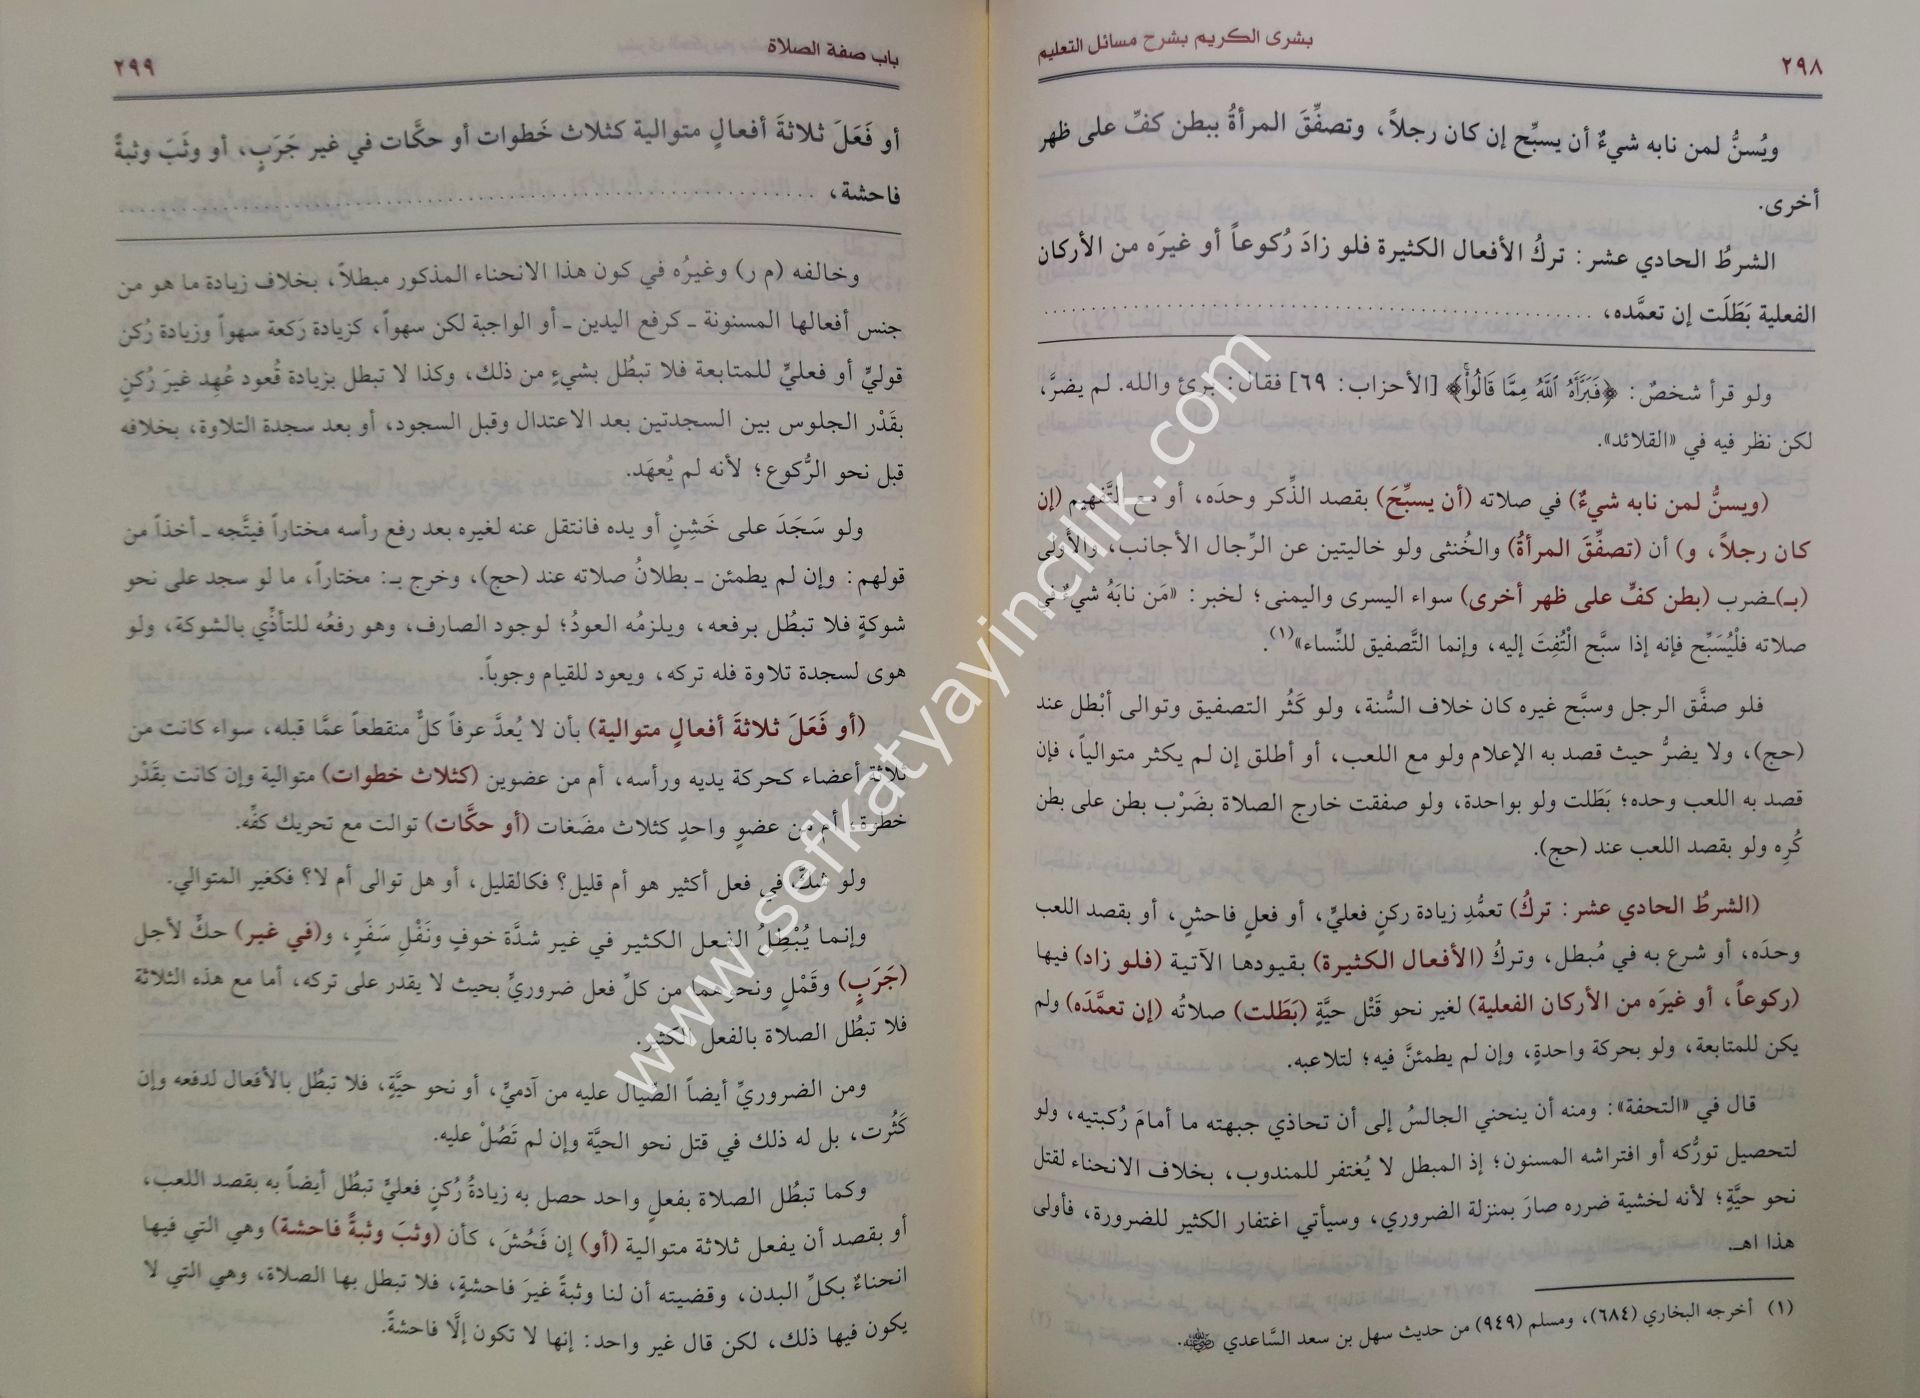 ٢٩٨
بشرى الكريم بشرح مسائل التعليم
ويُسنُّ لمن نابه شيءٌ أن يسبِّح إن كان رجلاً، وتصفِّقَ المرأةُ ببطن كفِّ على ظهر
أخرى.
الشرطُ الحادي عشر: تركُ الأفعال الكثيرة فلو زادَ رُكوعاً أو غيرَه من الأركان
الفعلية بَطَلَت إن تعمَّده، ........................................
ولو قرأ شخصٌ: ﴿فَبَرَّأَهُ ٱللَّهُ مِمَّا قَالُواْ﴾ [الأحزاب: ٦٩] فقال: برئ والله. لم يضرَّ،
لكن نظر فيه في «القلائد».
(ويسنُّ لمن نابه شيءٌ) في صلاته (أن يسبِّحَ) بقصد الذِّكر وحدَه، أو مع التَّفهيم (إن
كان رجلاً، و) أن (تصفِّقَ المرأةُ) والخُنثى ولو خاليتين عن الرِّجال الأجانب، والأَولى
(بـ)ـضرب (بطن كفِّ على ظهر أخرى) سواء اليسرى واليمنى؛ لخبر: «مَن نابَهُ شيءٌ في
صلاته فلْيُسَبِّح فإنه إذا سبَّح الْتُفِتَ إليه، وإنما التَّصفيق للنِّساء»(١).
فلو صفَّق الرجل وسبَّح غيره كان خلاف السُّنة، ولو كَثُر التصفيق وتوالى أبْطل عند
(حج)، ولا يضرُّ حيث قصد به الإعلام ولو مع اللعب، أو أطلق إن لم يكثر متوالياً، فإن
قصد به اللعب وحده؛ بَطَلت ولو بواحدة، ولو صفقت خارج الصلاة بضَرْب بطن على بطن
كُرِه ولو بقصد اللعب عند (حج).
(الشرطُ الحادي عشر: تركُ) تعمُّدِ زيادة ركنٍ فعليٍّ، أو فعلٍ فاحشٍ، أو بقصد اللعب
وحدَه، أو شرع به في مُبطل، وتركُ (الأفعال الكثيرة) بقيودها الآتية (فلو زاد) فيها
(ركوعاً، أو غيرَه من الأركان الفعلية) لغير نحو قَتْل حيَّةٍ (بَطَلت) صلاتُه (إن تعمَّدَه) ولم
يكن للمتابعة، ولو بحركة واحدةٍ، وإن لم يطمئنَّ فيه؛ لتلاعبه.
قال في «التحفة»: ومنه أن ينحني الجالسُ إلى أن تحاذي جبهته ما أمامَ رُكبتيه، ولو
لتحصيل تورُّكه أو افتراشه المسنون؛ إذ المبطل لا يُغتفر للمندوب، بخلاف الانحناء لقتل
نحو حيَّةٍ؛ لأنه لخشية ضرره صارَ بمنزلة الضروري، وسيأتي اغتفار الكثير للضرورة، فأولى
هذا اهـ.
(١) أخرجه البخاري (٦٨٤)، ومسلم (٩٤٩) من حديث سهل بن سعد السَّاعدي رضي الله عنه.
باب صفة الصلاة
٢٩٩
أو فَعَلَ ثلاثةَ أفعالٍ متوالية كثلاث خَطوات أو حكَّات في غير جَرَبٍ، أو وثَبَ وثبةً
فاحشة، ........................................
وخالفه (م ر) وغيرُه في كون هذا الانحناء المذكور مبطلاً، بخلاف زيادة ما هو من
جنس أفعالها المسنونة ـ كرفع اليدين ـ أو الواجبة لكن سهواً، كزيادة رَكعة سهواً وزيادة رُكن
قوليٍّ أو فعليٍّ للمتابعة فلا تبطُل بشيءٍ من ذلك، وكذا لا تبطل بزيادة قُعود عُهِد غيرَ رُكنٍ
بقَدْر الجلوس بين السجدتين بعد الاعتدال وقبل السجود، أو بعد سجدة التلاوة، بخلافه
قبل نحو الرُّكوع؛ لأنه لم يُعهَد.
ولو سَجَدَ على خَشِنٍ أو يده فانتقل عنه لغيره بعد رفع رأسه مختاراً فيتَّجه ـ أخذاً من
قولهم: وإن لم يطمئن ـ بطلانُ صلاته عند (حج)، وخرج بـ: مختاراً، ما لو سجد على نحو
شوكةٍ فلا تبطُل برفعه، ويلزمُه العودُ؛ لوجود الصارف، وهو رفعُه للتأذِّي بالشوكة، ولو
هوى لسجدة تلاوة فله تركه، ويعود للقيام وجوباً.
(أو فَعَلَ ثلاثةَ أفعالٍ متوالية) بأن لا يُعدَّ عرفاً كلٌّ منقطعاً عمَّا قبله، سواء كانت من
ثلاثة أعضاء كحركة يديه ورأسه، أم من عضوين (كثلاث خطوات) متوالية وإن كانت بقَدْر
خطوة، أم من عضوٍ واحدٍ كثلاث مضَغات (أو حكَّات) توالت مع تحريك كفِّه.
ولو شكَّ في فعل أكثير هو أم قليل؟ فكالقليل، أو هل توالى أم لا؟ فكغير المتوالي.
وإنما يُبْطِلُ الفعل الكثير في غير شدَّة خوفٍ ونَفْلِ سَفَرٍ، و(في غير) حكٍّ لأجل
(جَرَبٍ) وقَمْلٍ ونحوهما من كلِّ فعل ضروريٍّ بحيث لا يقدر على تركه، أما مع هذه الثلاثة
فلا تبطُل الصلاة بالفعل الكثير.
ومن الضروريِّ أيضاً الصِّيال عليه من آدميٍّ، أو نحو حيَّةٍ، فلا تبطُل بالأفعال لدفعه وإن
كَثُرت، بل له ذلك في قتل نحو الحيَّة وإن لم تَصُلْ عليه.
وكما تبطُل الصلاة بفعلٍ واحد حصل به زيادةُ رُكنٍ فعليٍّ تبطُل أيضاً به بقصد اللعب،
أو بقصد أن يفعل ثلاثة متوالية (أو) إن فَحُشَ، كأن (وثبَ وثبةً فاحشة) وهي التي فيها
انحناءٌ بكلِّ البدن، وقضيته أن لنا وثبةً غيرَ فاحشةٍ، فلا تبطل بها الصلاة، وهي التي لا
يكون فيها ذلك، لكن قال غير واحد: إنها لا تكون إلَّا فاحشةً.
www.sefkatyayincilik.com